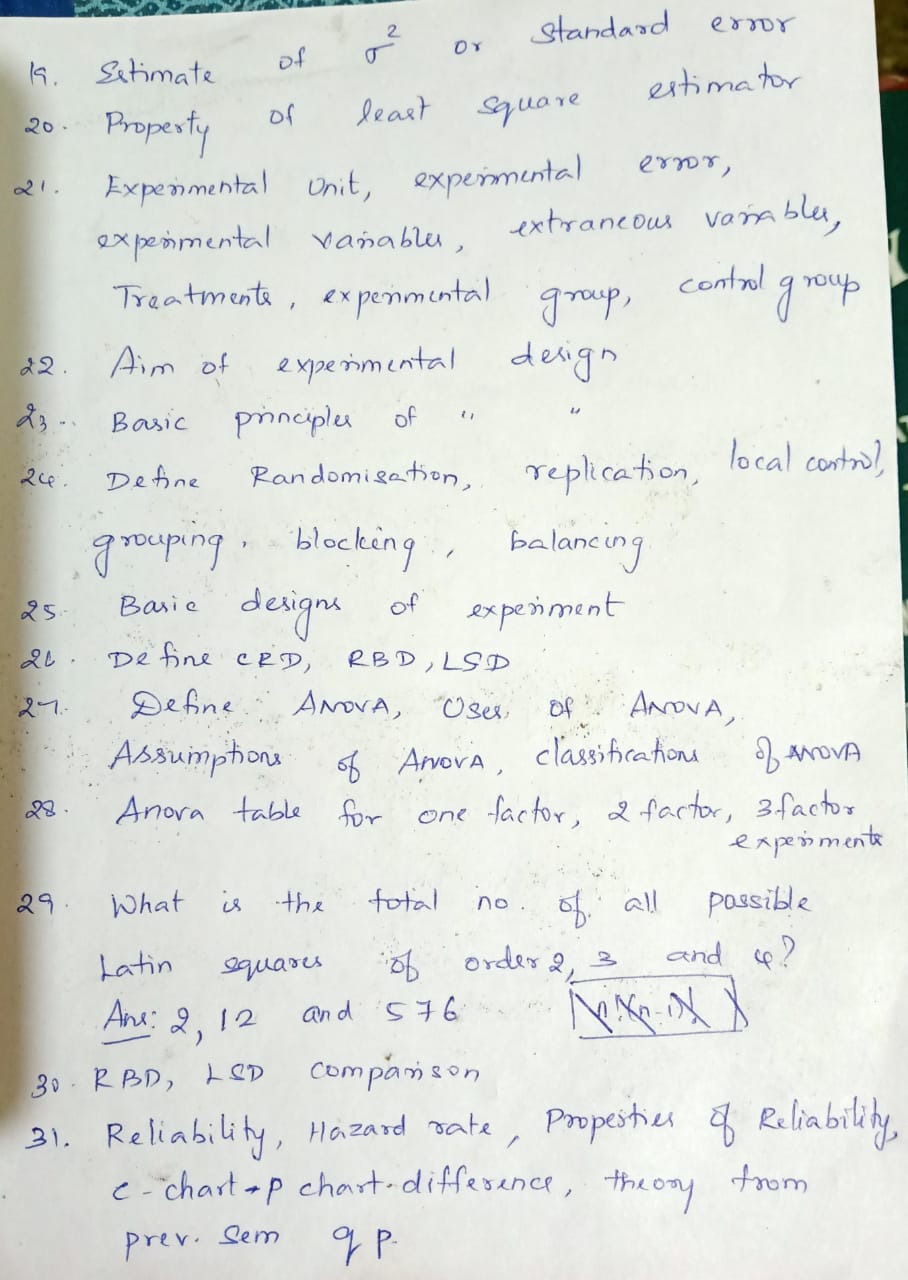 19. Estimate of σ² or Standard error
20. Property of least square estimator
21. Experimental Unit, experimental error,
experimental variables, extraneous variables,
Treatments, experimental group, control group
22. Aim of experimental design
23. Basic principles of " "
24. Define Randomisation, replication, local control,
grouping, blocking, balancing
25. Basic designs of experiment
26. Define CRD, RBD, LSD
27. Define ANOVA, Uses of ANOVA,
Assumptions of ANOVA, classifications of ANOVA
28. Anova table for one factor, 2 factor, 3 factor
experiments
29. What is the total no. of all possible
Latin squares of order 2, 3 and 4?
Ans: 2, 12 and 576
30. RBD, LSD comparison
31. Reliability, Hazard rate, Properties of Reliability,
c-chart p chart difference, theory from
prev. Sem q p.